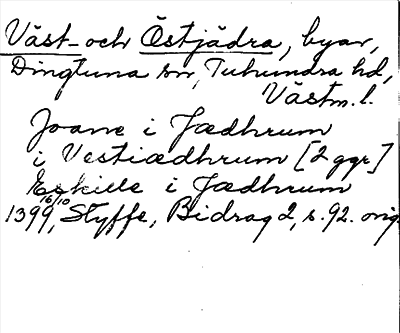 Väst- och Östjädra, byar,
Dingtuna sn, Tuhundra hd,
Västm. l.
Joanne i Jædhrum
i Vestiædhrum [2 ggr]
Eskille i Jædhrum
16/10
1399, Styffe, Bidrag 2, s. 92. orig.